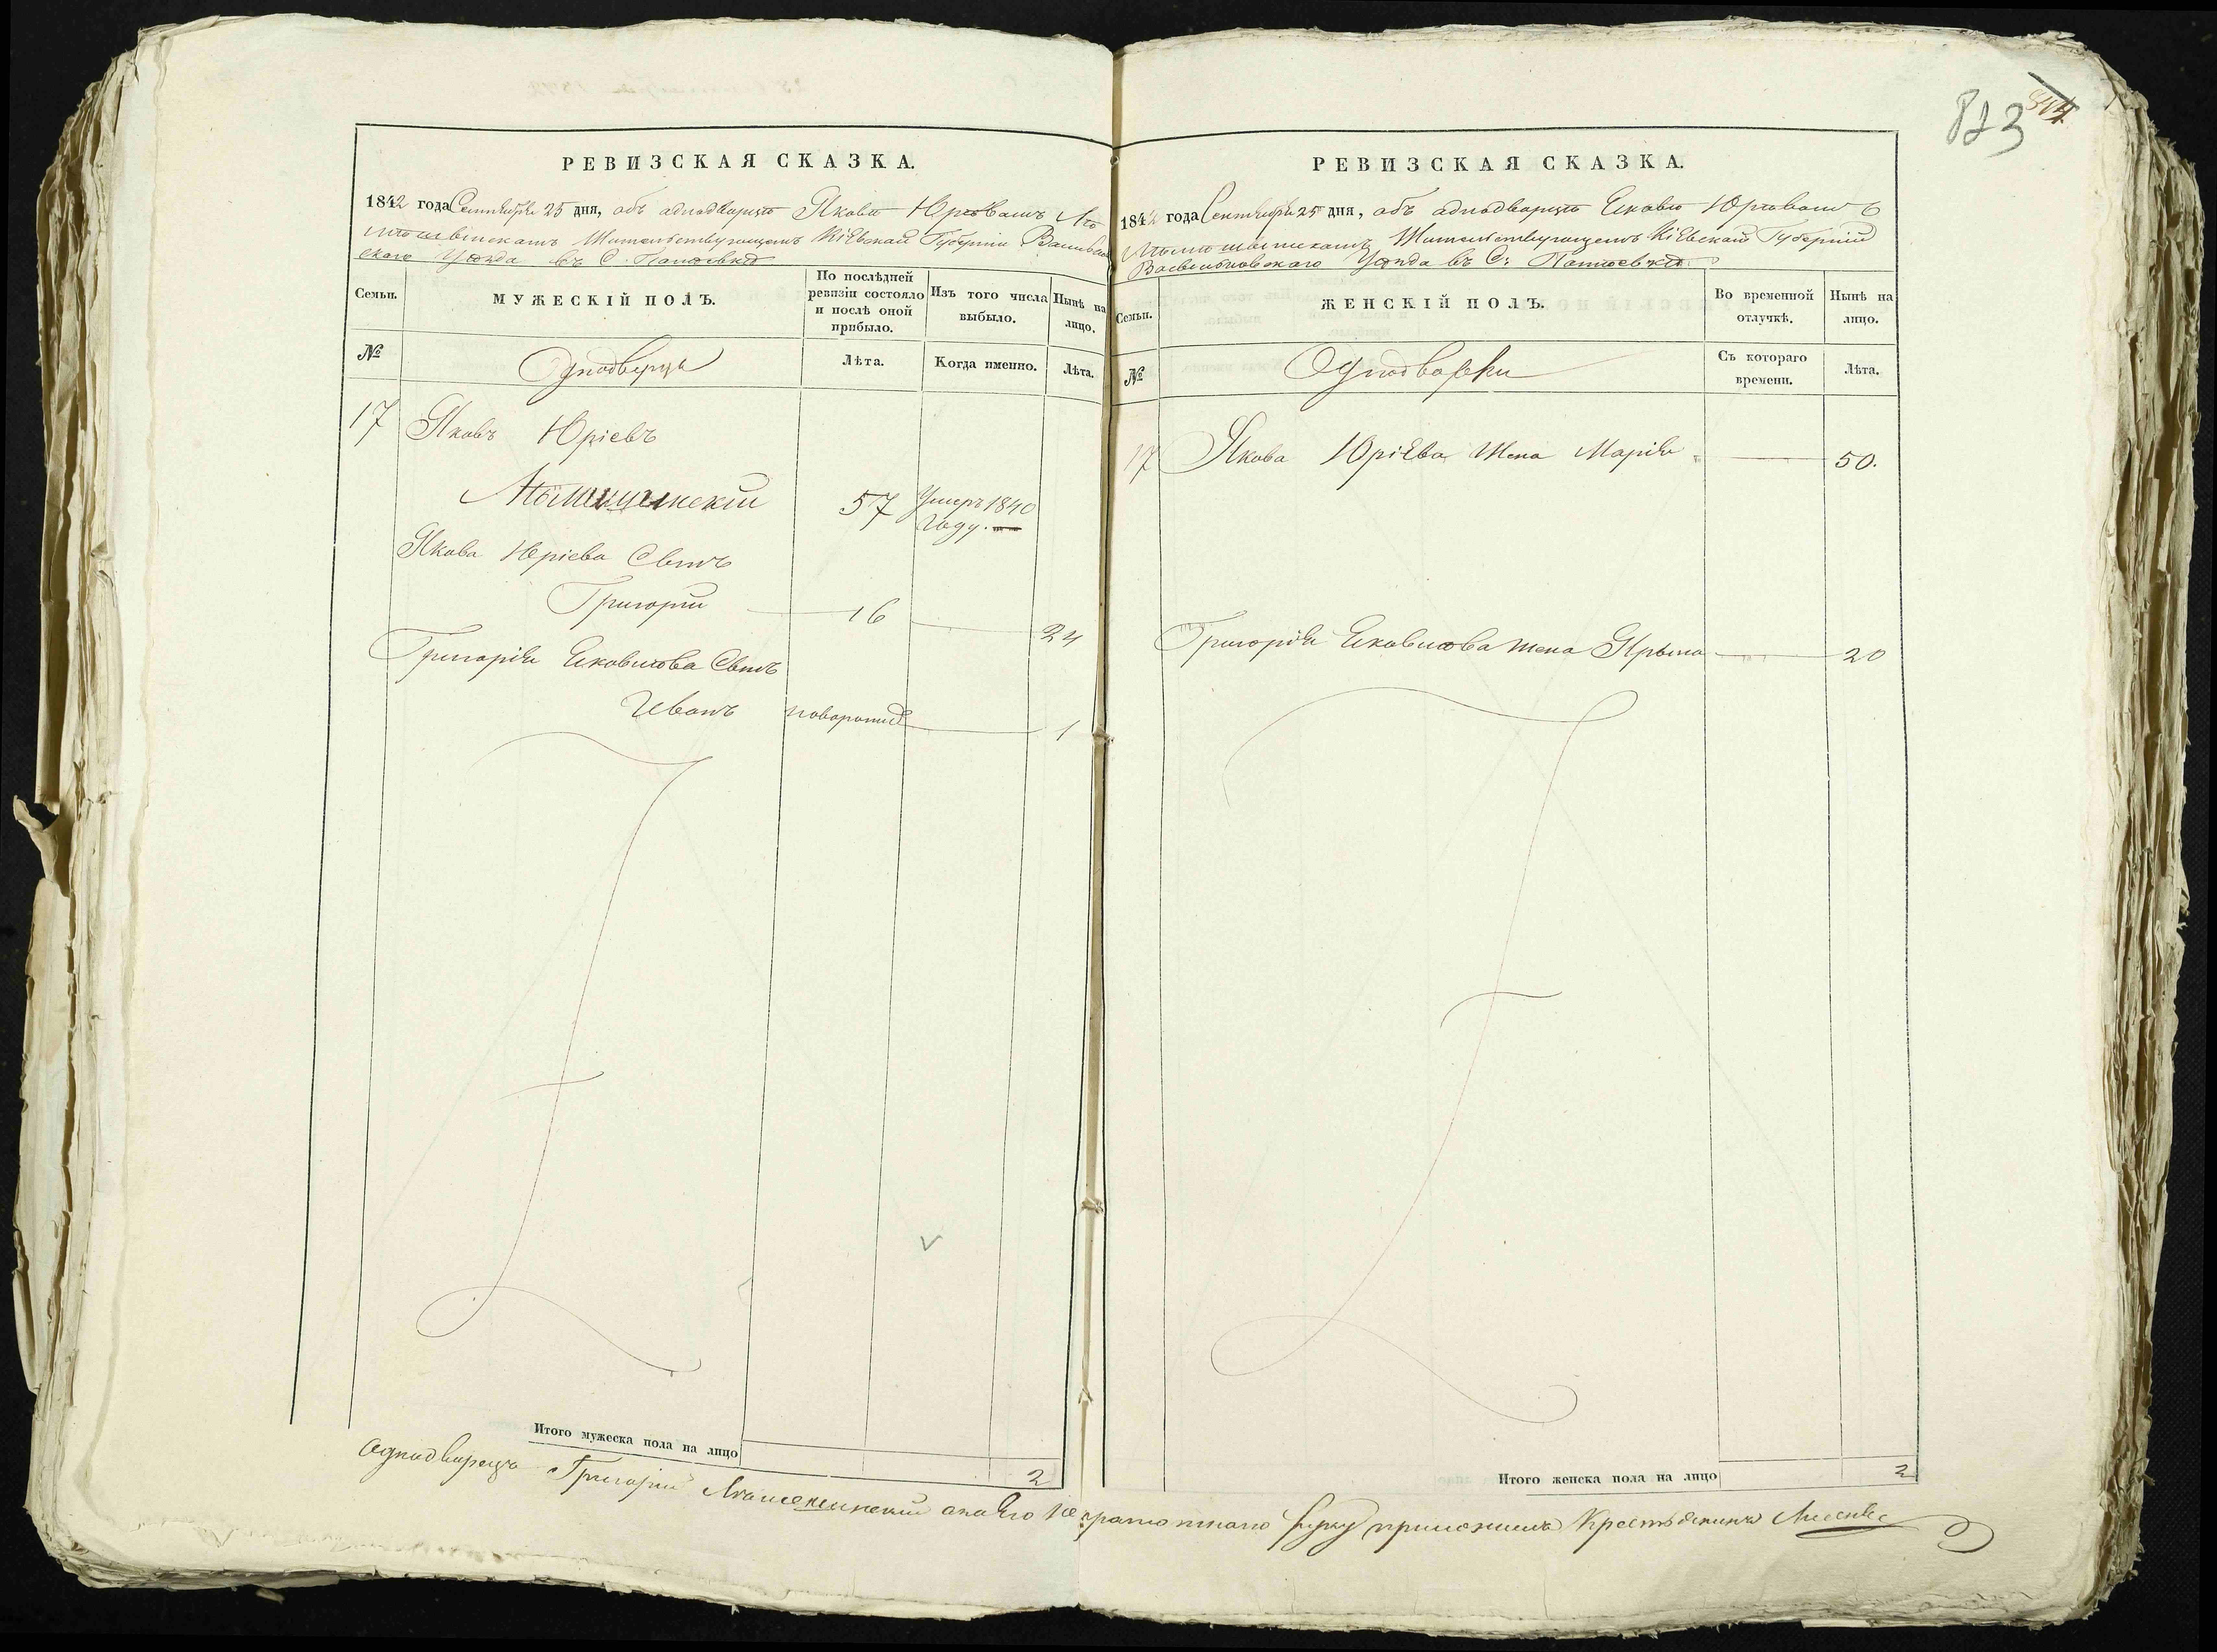 823
РЕВИЗСКАЯ СКАЗКА.
1842 года Сентября 25 дня, объ аднодворцѣ Якови Юріевомъ
Жительствующемъ Кіевской Губерніи
скаго Уезда въ С.
Семьи. МУЖЕСКІЙ ПОЛЪ. По послѣдней ревизіи состояло и послѣ оной прибыло. Изъ того числа выбыло. Нынѣ на лицо.
№ Однодворцы Лѣта. Когда именно. Лѣта.
17 Яковъ Юріевъ
57 Умеръ 1840
Году.
Якова Юріева Сынъ
Григорій 16 24
Григорія Ековлова Сынъ
Иванъ новорожде 1
Итого мужеска пола на лицо 2
РЕВИЗСКАЯ СКАЗКА.
1842 года Сентября 25 дня, объ аднодворцѣ Екове Юрьевомъ
Жительствующемъ Кіевской Губерніи
Васильковскаго Уезда въ С:
Семьи. ЖЕНСКІЙ ПОЛЪ. Во временной отлучкѣ. Нынѣ на лицо.
№ Однодворки Съ котораго времени. Лѣта.
17 Якова Юріева Жена Марія 50.
Григорія Ековлова жена 20
Итого женска пола на лицо 2
Аднодворецъ Григорій а на его неграмотнаго руку приложилъ Крестьянинъ